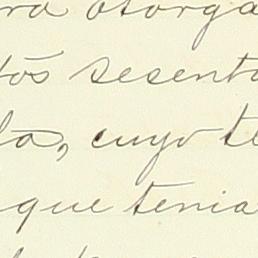 ra otorga
tos sesenta
la, cuyo te
que tenia